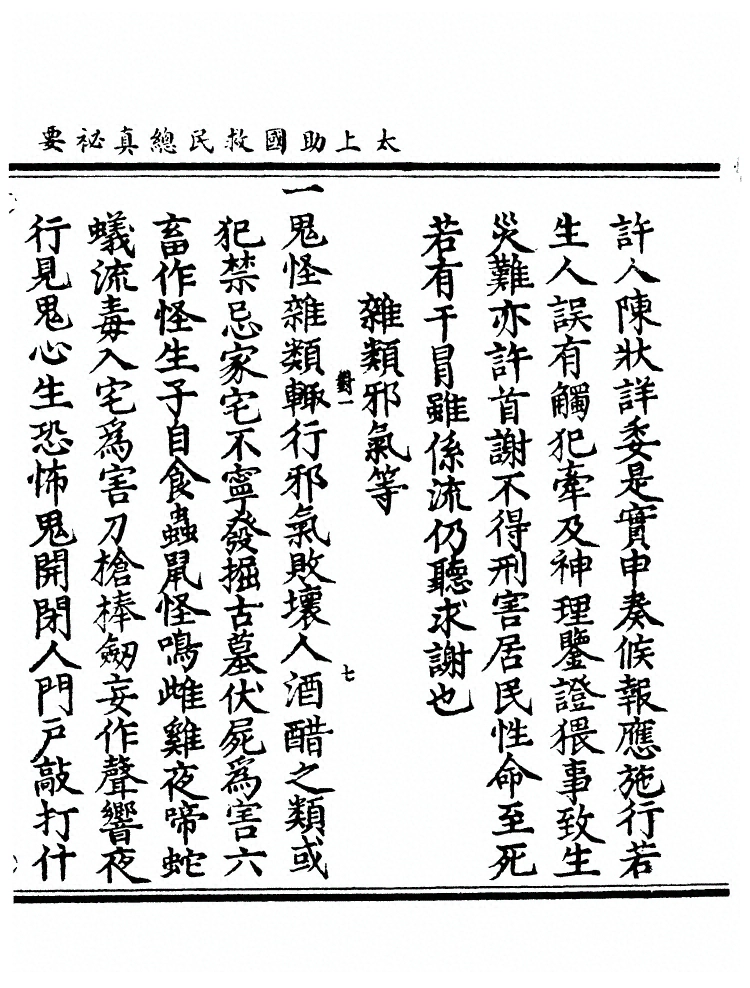 太上助國救民總真祕要
許人陳狀詳委是實申奏候報應施行若
生人誤有觸犯牽及神理鑒證猥事致生
災難亦許首謝不得刑害居民性命至死
若有干冒雖係流仍聽求謝也
雜類邪氣等
一鬼怪雜類輙行邪氣敗壞人酒醋之類或
犯禁忌家宅不寧發掘古墓伏屍爲害六
畜作怪生子自食蟲鼠怪鳴雌雞夜啼蛇
蟻流毒入宅爲害刀槍捧劒妄作聲響夜
行見鬼心生恐怖鬼開閉人門戶敲打什